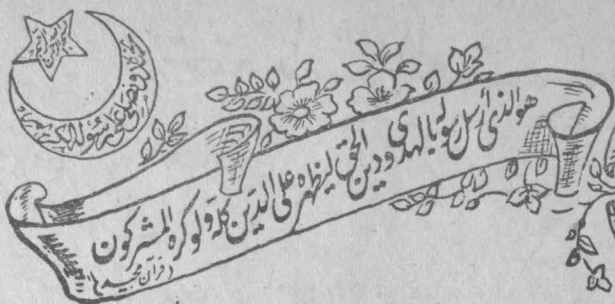 نحمده و نصلی علی رسوله الکریم
هو الذی أرسل رسوله بالهدی و دین الحق لیظهره علی الدین کله و لو کره المشرکون
(قرآن مجید)